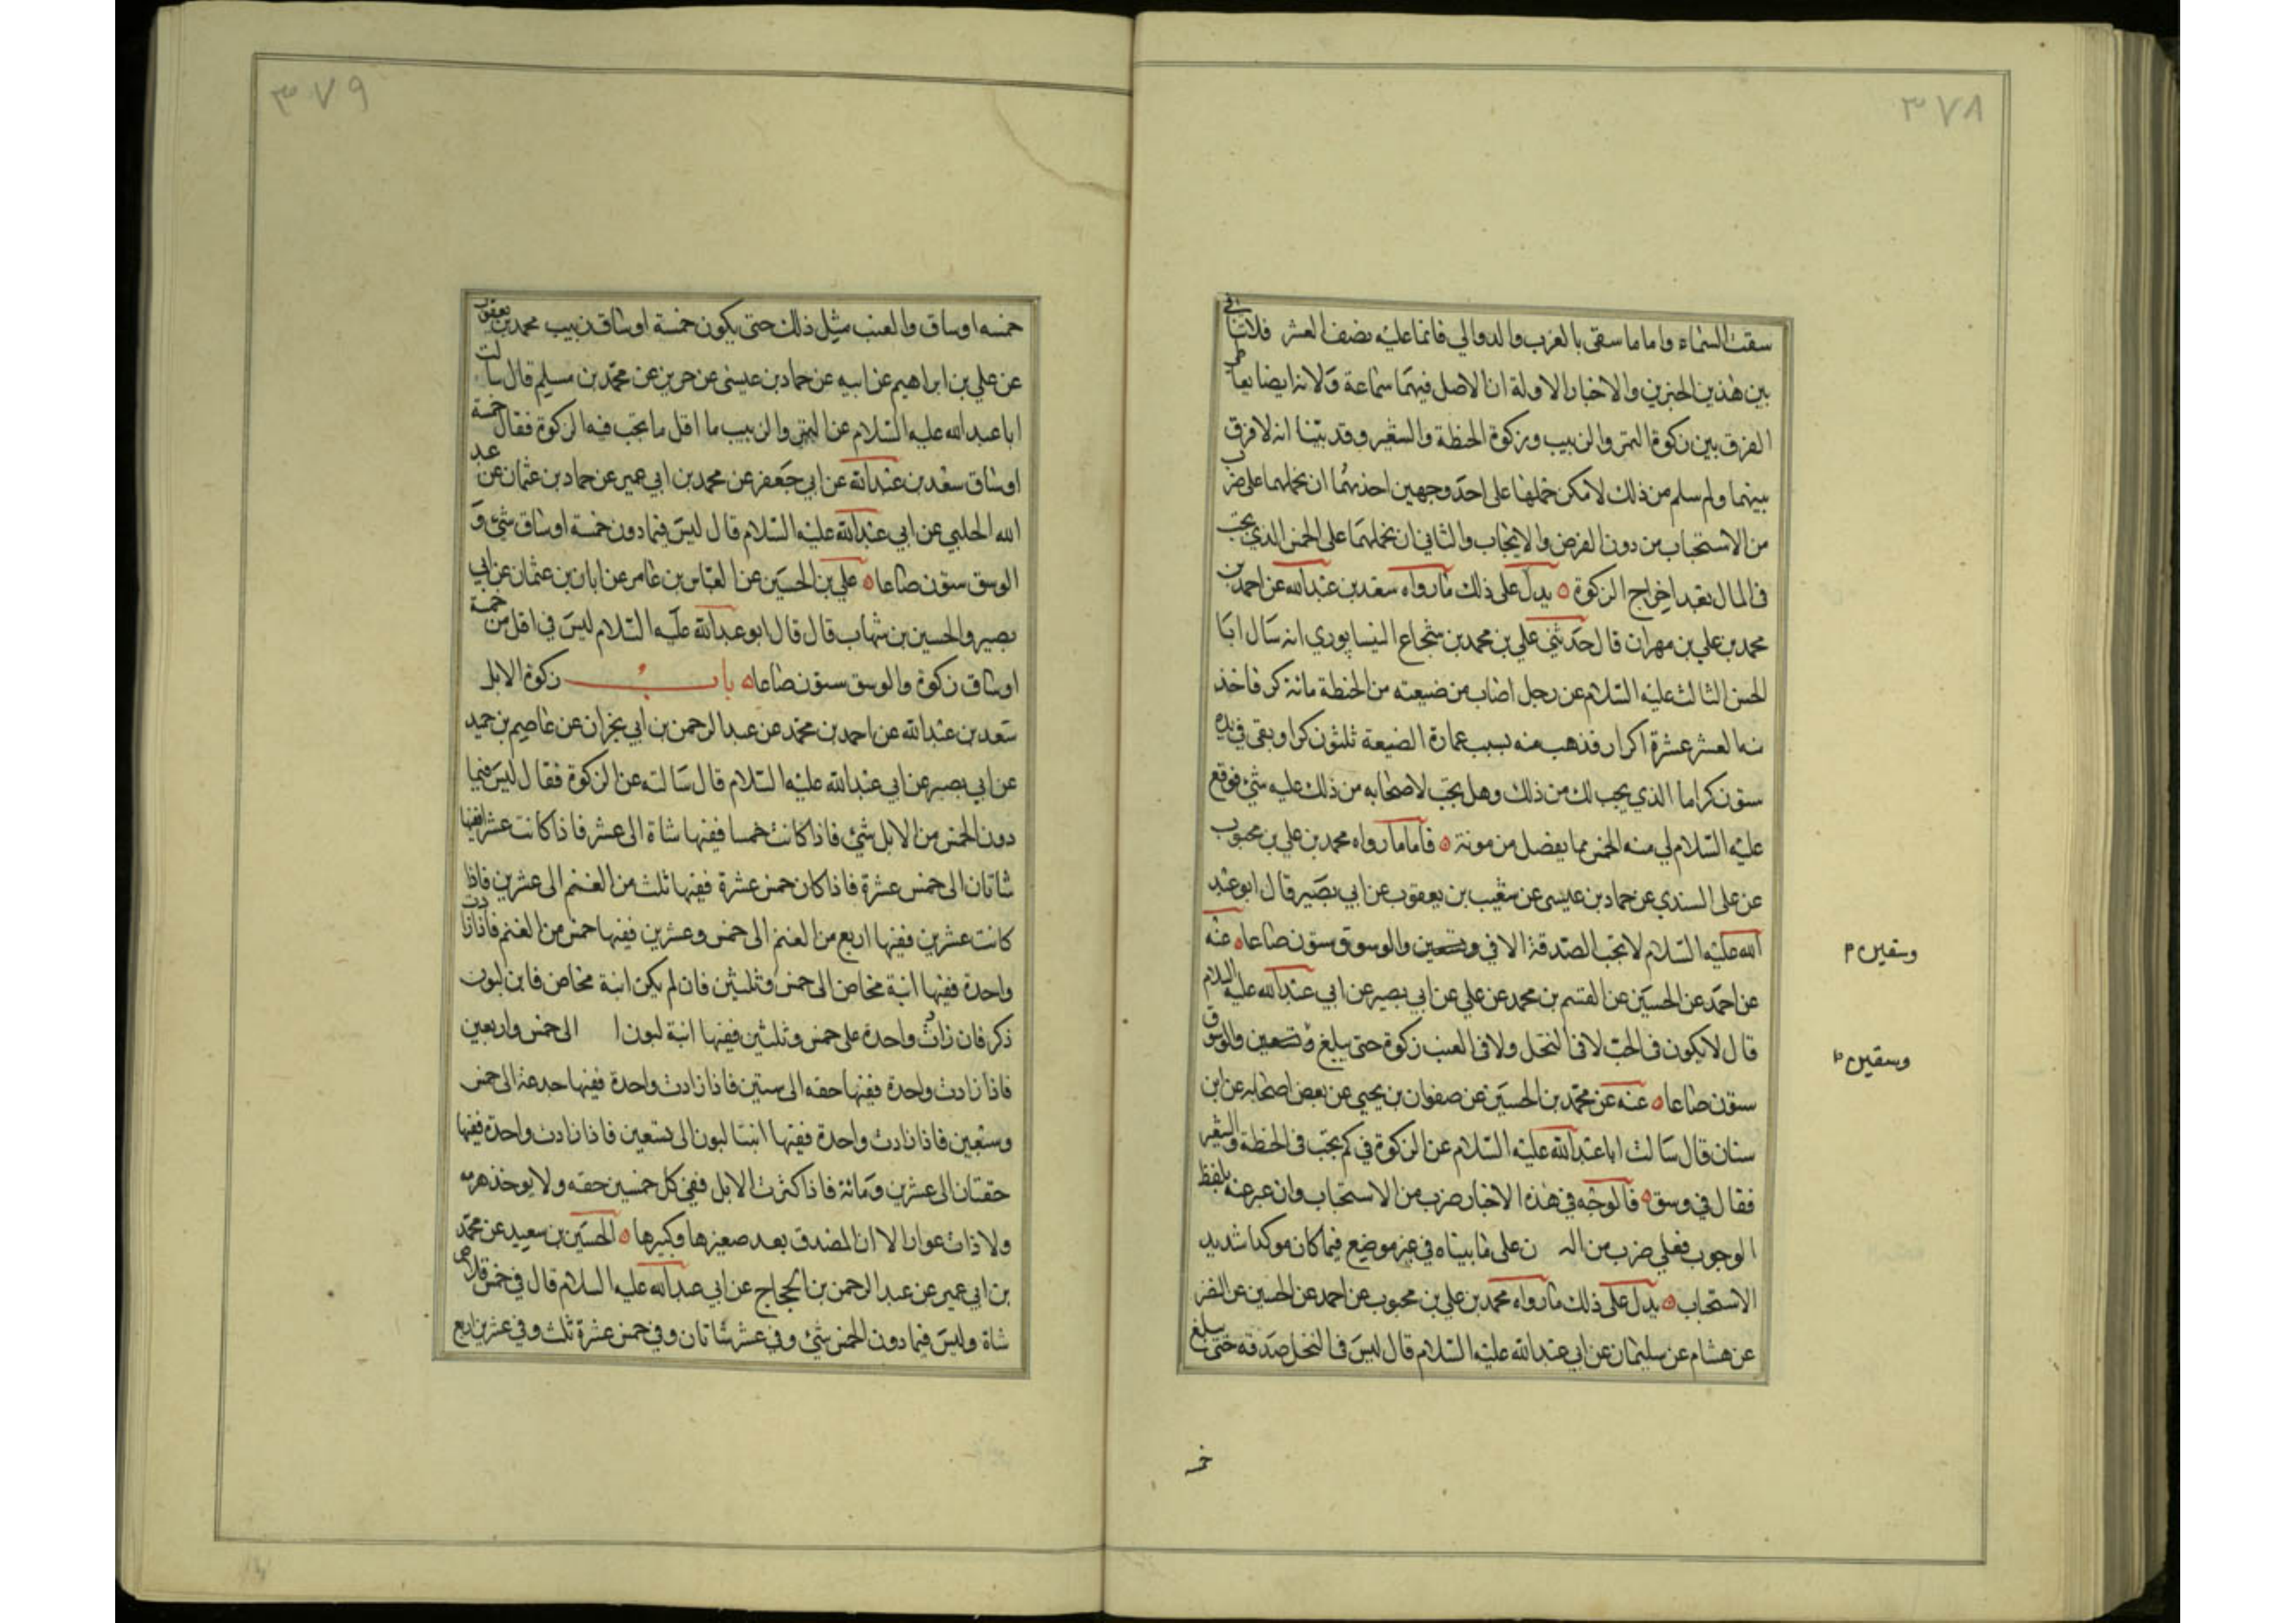 ٣٧٨
سقت السماء واما ما سقى بالغرب والدوالي فانما عليه نصف العشر فلا تنافى
بين هذين الخبرين والاخبار الاولة ان الاصل فيهما سماعة ولانه ايضا
الفرق بين زكوة التمر والزبيب وزكوة الحنطة والشعير وقد بينا انه لا فرق
بينهما ولم سلم من ذلك لامكن حملها على احد وجهين احدهما ان نحملهما على ضرب
من الاستحباب من دون الفرض والايجاب والثاني ان نحملهما على الخمس الذي يجب
فى المال بعد اخراج الزكوة ه يدل على ذلك ما رواه سعد بن عبد الله عن احمد بن
محمد بن علي بن مهران قال حدثني علي بن محمد بن شجاع النيسابوري انه سال ابا
الحسن الثالث عليه السلام عن رجل اصاب من ضيعته من الحنطة مائة كر فاخذ
منه العشر عشرة اكرار فذهب منه بسبب عمارة الضيعة ثلثون كرا وبقى في يده
ستون كرا ما الذي يجب لك من ذلك وهل يجب لاصحابه من ذلك عليه شئ فوقع
عليه السلام لي منه الخمس مما يفضل من مونته ه فاما ما رواه محمد بن علي بن محبوب
عن على السندي عن حماد بن عيسى عن شعيب بن يعقوب عن ابي بصير قال ابو عبد
الله عليه السلام لا تجب الصدقة الا في والوسوق ستون صاعا ه عنه
وسقين م
عن احمد عن الحسين عن القسم بن محمد عن علي عن ابي بصير عن ابي عبد الله عليه السلام
قال لا يكون فى الحب لا فى النخل ولا فى العنب زكوة حتى يبلغ والوسق
وسقين م
ستون صاعا ه عنه عن محمد بن الحسين عن صفوان بن يحيى عن بعض اصحابه عن ابن
سنان قال سالت ابا عبد الله عليه السلام عن الزكوة في كم تجب فى الحنطة والشعير
فقال في وسق ه فالوجه في هذه الاخبار ضرب من الاستحباب وان عبر عنه بلفظ
الوجوب فعلي ضرب من ن على ما بيناه في غير موضع فيما كان موكدا شديد
الاستحباب ه يدل على ذلك ما رواه محمد بن علي بن محبوب عن احمد عن الحسين عن النضر
عن هشام عن سليمان عن ابي عبد الله عليه السلام قال ليس فى النخل صدقه حتى يبلغ
خمسه
٣٧٩
خمسه اوساق والعنب مثل ذلك حتى يكون خمسة اوساق زبيب محمد بن يعقوب
عن علي بن ابراهيم عن ابيه عن حماد بن عيسى عن حريز عن محمد بن مسلم قال سالت
ابا عبد الله عليه السلام عن التمر والزبيب ما اقل ما تجب فيه الزكوة فقال خمسة
اوساق سعد بن عبد الله عن ابي جعفر عن محمد بن ابي عمير عن حماد بن عثمان عن عبد
الله الحلبي عن ابي عبد الله عليه السلام قال ليس فيما دون خمسة اوساق شئ و
الوسق ستون صاعا ه علي بن الحسين عن العباس بن عامر عن ابان بن عثمان عن ابي
بصير والحسين بن شهاب قال قال ابو عبد الله عليه السلام ليس في اقل من خمسة
اوساق زكوة والوسق ستون صاعا ه باب زكوة الابل
سعد بن عبد الله عن احمد بن محمد عن عبد الرحمن بن ابي نجران عن عاصم بن حميد
عن ابي بصير عن ابي عبد الله عليه السلام قال سالته عن الزكوة فقال ليس فيما
دون الخمس من الابل شئ فاذا كانت خمسا ففيها شاة الى عشر فاذا كانت عشرا ففيها
شاتان الى خمس عشرة فاذا كان خمس عشرة ففيها ثلث من الغنم الى عشرين فاذا
كانت عشرين ففيها اربع من الغنم الى خمس وعشرين ففيها خمس من الغنم فاذا زادت
واحدة ففيها ابنة مخاض الى خمس وثلثين فان لم يكن ابنة مخاض فابن لبون
ذكر فان زادت واحدة على خمس وثلثين ففيها ابنة لبون ا الى خمس واربعين
فاذا زادت واحدة ففيها حقه الى ستين فاذا زادت واحدة ففيها جدعة الى خمس
وسبعين فاذا زادت واحدة ففيها ابنتا لبون الى تسعين فاذا زادت واحدة ففيها
حقتان الى عشرين ومائة فاذا كثرت الابل ففي كل خمسين حقه ولا يوخذ هرمه
ولا ذات عوار الا ان المصدق يعد صغيرها وكبيرها ه الحسين بن سعيد عن محمد
بن ابي عمير عن عبد الرحمن بن الحجاج عن ابي عبد الله عليه السلام قال في خمس قلاص
شاة وليس فيما دون الخمس شئ وفي عشر شاتان وفي خمس عشرة ثلث وفي عشرين اربع